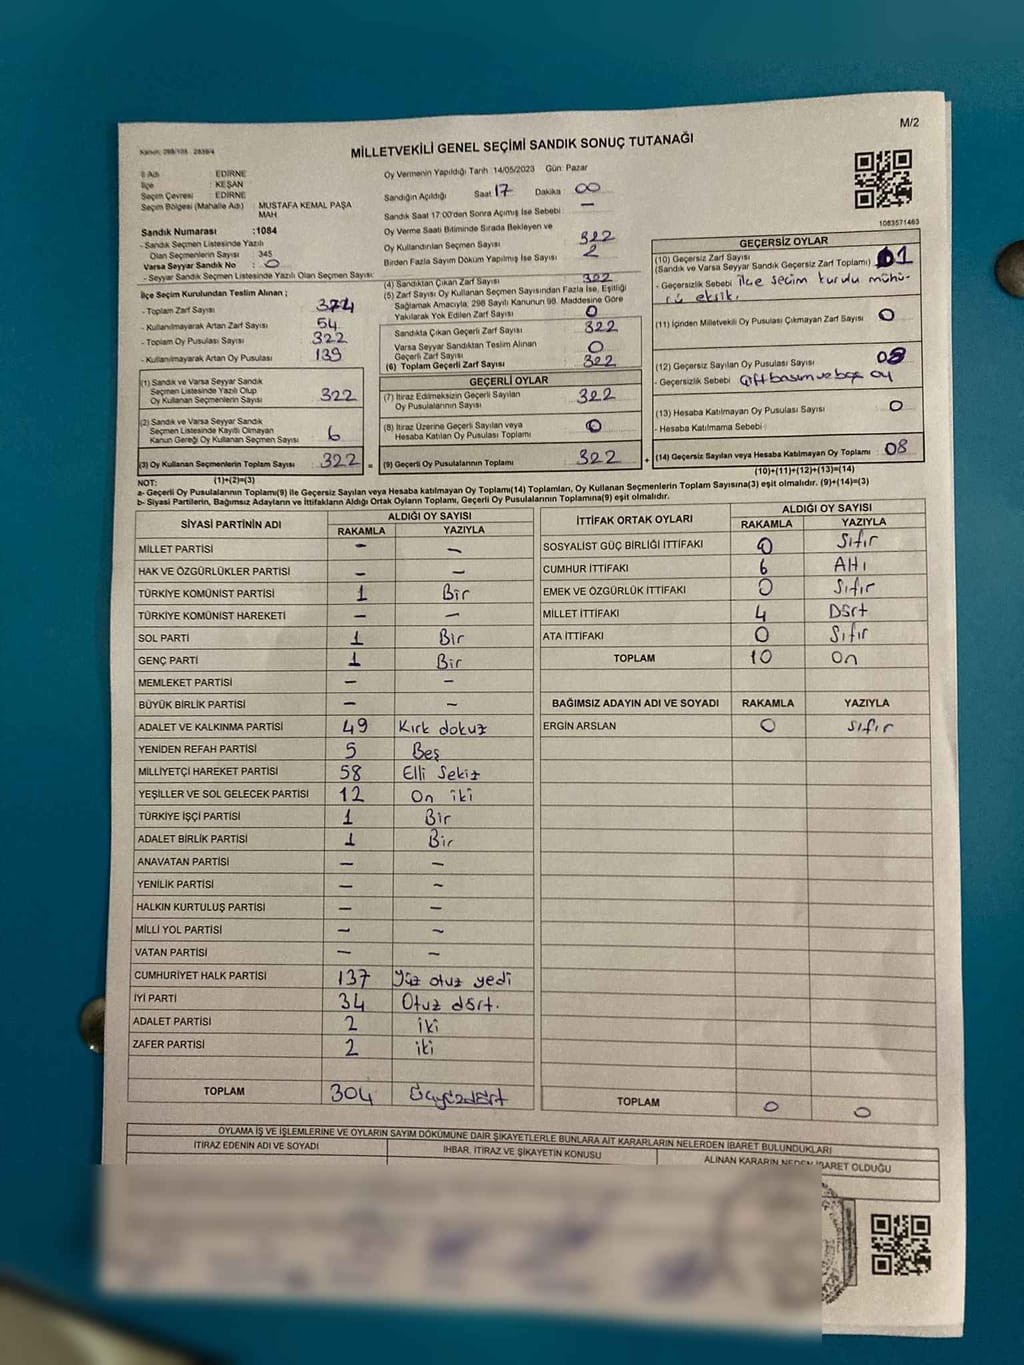 M/2
MİLLETVEKİLİ GENEL SEÇİMİ SANDIK SONUÇ TUTANAĞI
İl Adı : EDİRNE
İlçe : KEŞAN
Seçim Çevresi : EDİRNE
Seçim Bölgesi (Mahalle Adı) : MUSTAFA KEMAL PAŞA MAH
Sandık Numarası :1084
- Sandık Seçmen Listesinde Yazılı
Olan Seçmenlerin Sayısı : 345
Varsa Seyyar Sandık No : 0
- Seyyar Sandık Seçmen Listesinde Yazılı Olan Seçmen Sayısı:
Oy Vermenin Yapıldığı Tarih :14/05/2023 Gün: Pazar
Sandığın Açıldığı Saat 17 Dakika 00
Sandık Saat 17:00'den Sonra Açılmış İse Sebebi : —
Oy Verme Saati Bitiminde Sırada Bekleyen ve
Oy Kullandırılan Seçmen Sayısı : 322
Birden Fazla Sayım Döküm Yapılmış İse Sayısı : 2
1083571463
İlçe Seçim Kurulundan Teslim Alınan ;
- Toplam Zarf Sayısı : 374
- Kullanılmayarak Artan Zarf Sayısı : 54
- Toplam Oy Pusulası Sayısı : 322
- Kullanılmayarak Artan Oy Pusulası : 139
(1) Sandık ve Varsa Seyyar Sandık
Seçmen Listesinde Yazılı Olup
Oy Kullanan Seçmenlerin Sayısı : 322
(2) Sandık ve Varsa Seyyar Sandık
Seçmen Listesinde Kayıtlı Olmayan
Kanun Gereği Oy Kullanan Seçmen Sayısı : 6
(3) Oy Kullanan Seçmenlerin Toplam Sayısı : 322 =
(4) Sandıktan Çıkan Zarf Sayısı : 322
(5) Zarf Sayısı Oy Kullanan Seçmen Sayısından Fazla İse, Eşitliği
Sağlamak Amacıyla, 298 Sayılı Kanunun 98. Maddesine Göre
Yakılarak Yok Edilen Zarf Sayısı : 0
Sandıkta Çıkan Geçerli Zarf Sayısı : 322
Varsa Seyyar Sandıktan Teslim Alınan
Geçerli Zarf Sayısı : 0
(6) Toplam Geçerli Zarf Sayısı : 322
GEÇERLİ OYLAR
(7) İtiraz Edilmeksizin Geçerli Sayılan
Oy Pusulalarının Sayısı : 322
(8) İtiraz Üzerine Geçerli Sayılan veya
Hesaba Katılan Oy Pusulası Toplamı : 0
(9) Geçerli Oy Pusulalarının Toplamı : 322 +
GEÇERSİZ OYLAR
(10) Geçersiz Zarf Sayısı
(Sandık ve Varsa Seyyar Sandık Geçersiz Zarf Toplamı) : 01
- Geçersizlik Sebebi : İlçe seçim kurulu mühü-
rü eksik.
(11) İçinden Milletvekili Oy Pusulası Çıkmayan Zarf Sayısı : 0
(12) Geçersiz Sayılan Oy Pusulası Sayısı : 08
- Geçersizlik Sebebi : Çift basım ve boş oy
(13) Hesaba Katılmayan Oy Pusulası Sayısı : 0
- Hesaba Katılmama Sebebi :
(14) Geçersiz Sayılan veya Hesaba Katılmayan Oy Toplamı : 08
(10)+(11)+(12)+(13)=(14)
NOT: (1)+(2)=(3)
a- Geçerli Oy Pusulalarının Toplamı(9) ile Geçersiz Sayılan veya Hesaba katılmayan Oy Toplamı(14) Toplamları, Oy Kullanan Seçmenlerin Toplam Sayısına(3) eşit olmalıdır. (9)+(14)=(3)
b- Siyasi Partilerin, Bağımsız Adayların ve İttifakların Aldığı Ortak Oyların Toplamı, Geçerli Oy Pusulalarının Toplamına(9) eşit olmalıdır.
SİYASİ PARTİNİN ADI ALDIĞI OY SAYISI
RAKAMLA YAZIYLA
MİLLET PARTİSİ — —
HAK VE ÖZGÜRLÜKLER PARTİSİ — —
TÜRKİYE KOMÜNİST PARTİSİ 1 Bir
TÜRKİYE KOMÜNİST HAREKETİ — —
SOL PARTİ 1 Bir
GENÇ PARTİ 1 Bir
MEMLEKET PARTİSİ — —
BÜYÜK BİRLİK PARTİSİ — —
ADALET VE KALKINMA PARTİSİ 49 Kırk dokuz
YENİDEN REFAH PARTİSİ 5 Beş
MİLLİYETÇİ HAREKET PARTİSİ 58 Elli Sekiz
YEŞİLLER VE SOL GELECEK PARTİSİ 12 On iki
TÜRKİYE İŞÇİ PARTİSİ 1 Bir
ADALET BİRLİK PARTİSİ 1 Bir
ANAVATAN PARTİSİ — —
YENİLİK PARTİSİ — —
HALKIN KURTULUŞ PARTİSİ — —
MİLLİ YOL PARTİSİ — —
VATAN PARTİSİ — —
CUMHURİYET HALK PARTİSİ 137 Yüz otuz yedi
İYİ PARTİ 34 Otuz dört.
ADALET PARTİSİ 2 iki
ZAFER PARTİSİ 2 iki
TOPLAM 304 Üçyüzdört
İTTİFAK ORTAK OYLARI ALDIĞI OY SAYISI
RAKAMLA YAZIYLA
SOSYALİST GÜÇ BİRLİĞİ İTTİFAKI 0 Sıfır
CUMHUR İTTİFAKI 6 Altı
EMEK VE ÖZGÜRLÜK İTTİFAKI 0 Sıfır
MİLLET İTTİFAKI 4 Dört
ATA İTTİFAKI 0 Sıfır
TOPLAM 10 On
BAĞIMSIZ ADAYIN ADI VE SOYADI RAKAMLA YAZIYLA
ERGİN ARSLAN 0 Sıfır
TOPLAM 0 0
OYLAMA İŞ VE İŞLEMLERİNE VE OYLARIN SAYIM DÖKÜMÜNE DAİR ŞİKAYETLERLE BUNLARA AİT KARARLARIN NELERDEN İBARET BULUNDUKLARI
İTİRAZ EDENİN ADI VE SOYADI İHBAR, İTİRAZ VE ŞİKAYETİN KONUSU ALINAN KARARIN NEDEN İBARET OLDUĞU